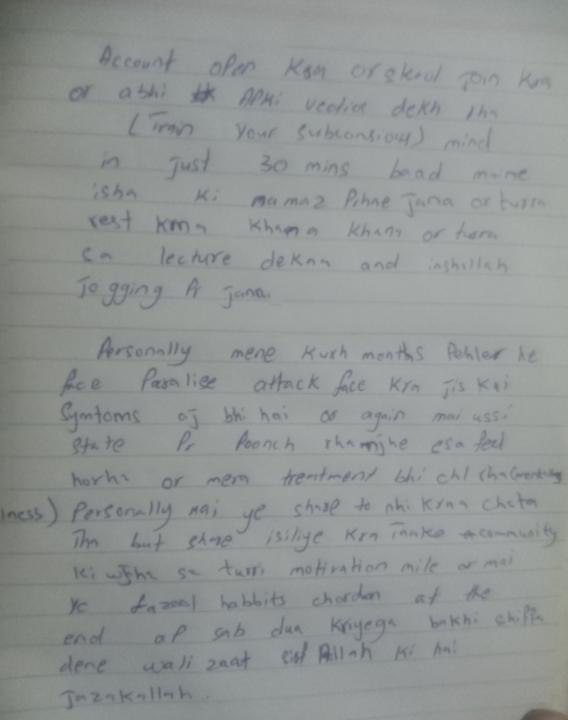 Account open kra or skool join kra
or abhi apki vedioe dekh rha
(Train your subconsious) mind
in just 30 mins baad mene
isha ki namaz Prhne jana or turra
rest krna khana khana or turra
sa lecture dekna and inshallah
Jogging Pr jana.
Personally mene kuch months Pehle he
face Paralise attack face kra jis kai
Symtoms aj bhi hai or again mai ussi
state Pr Poonch rha esa feel
horha or mera treatment bhi chl rha
lness) Personally mai ye share to nhi krna chata
Tha but share isiliye kra community
ki wjha se turri motivation mile or mai
ye fazool habbits chordon at the
end ap sab dua kriyega bakhi shiffa
dene wali zaat sirf Allah ki hai
Jazakallah.